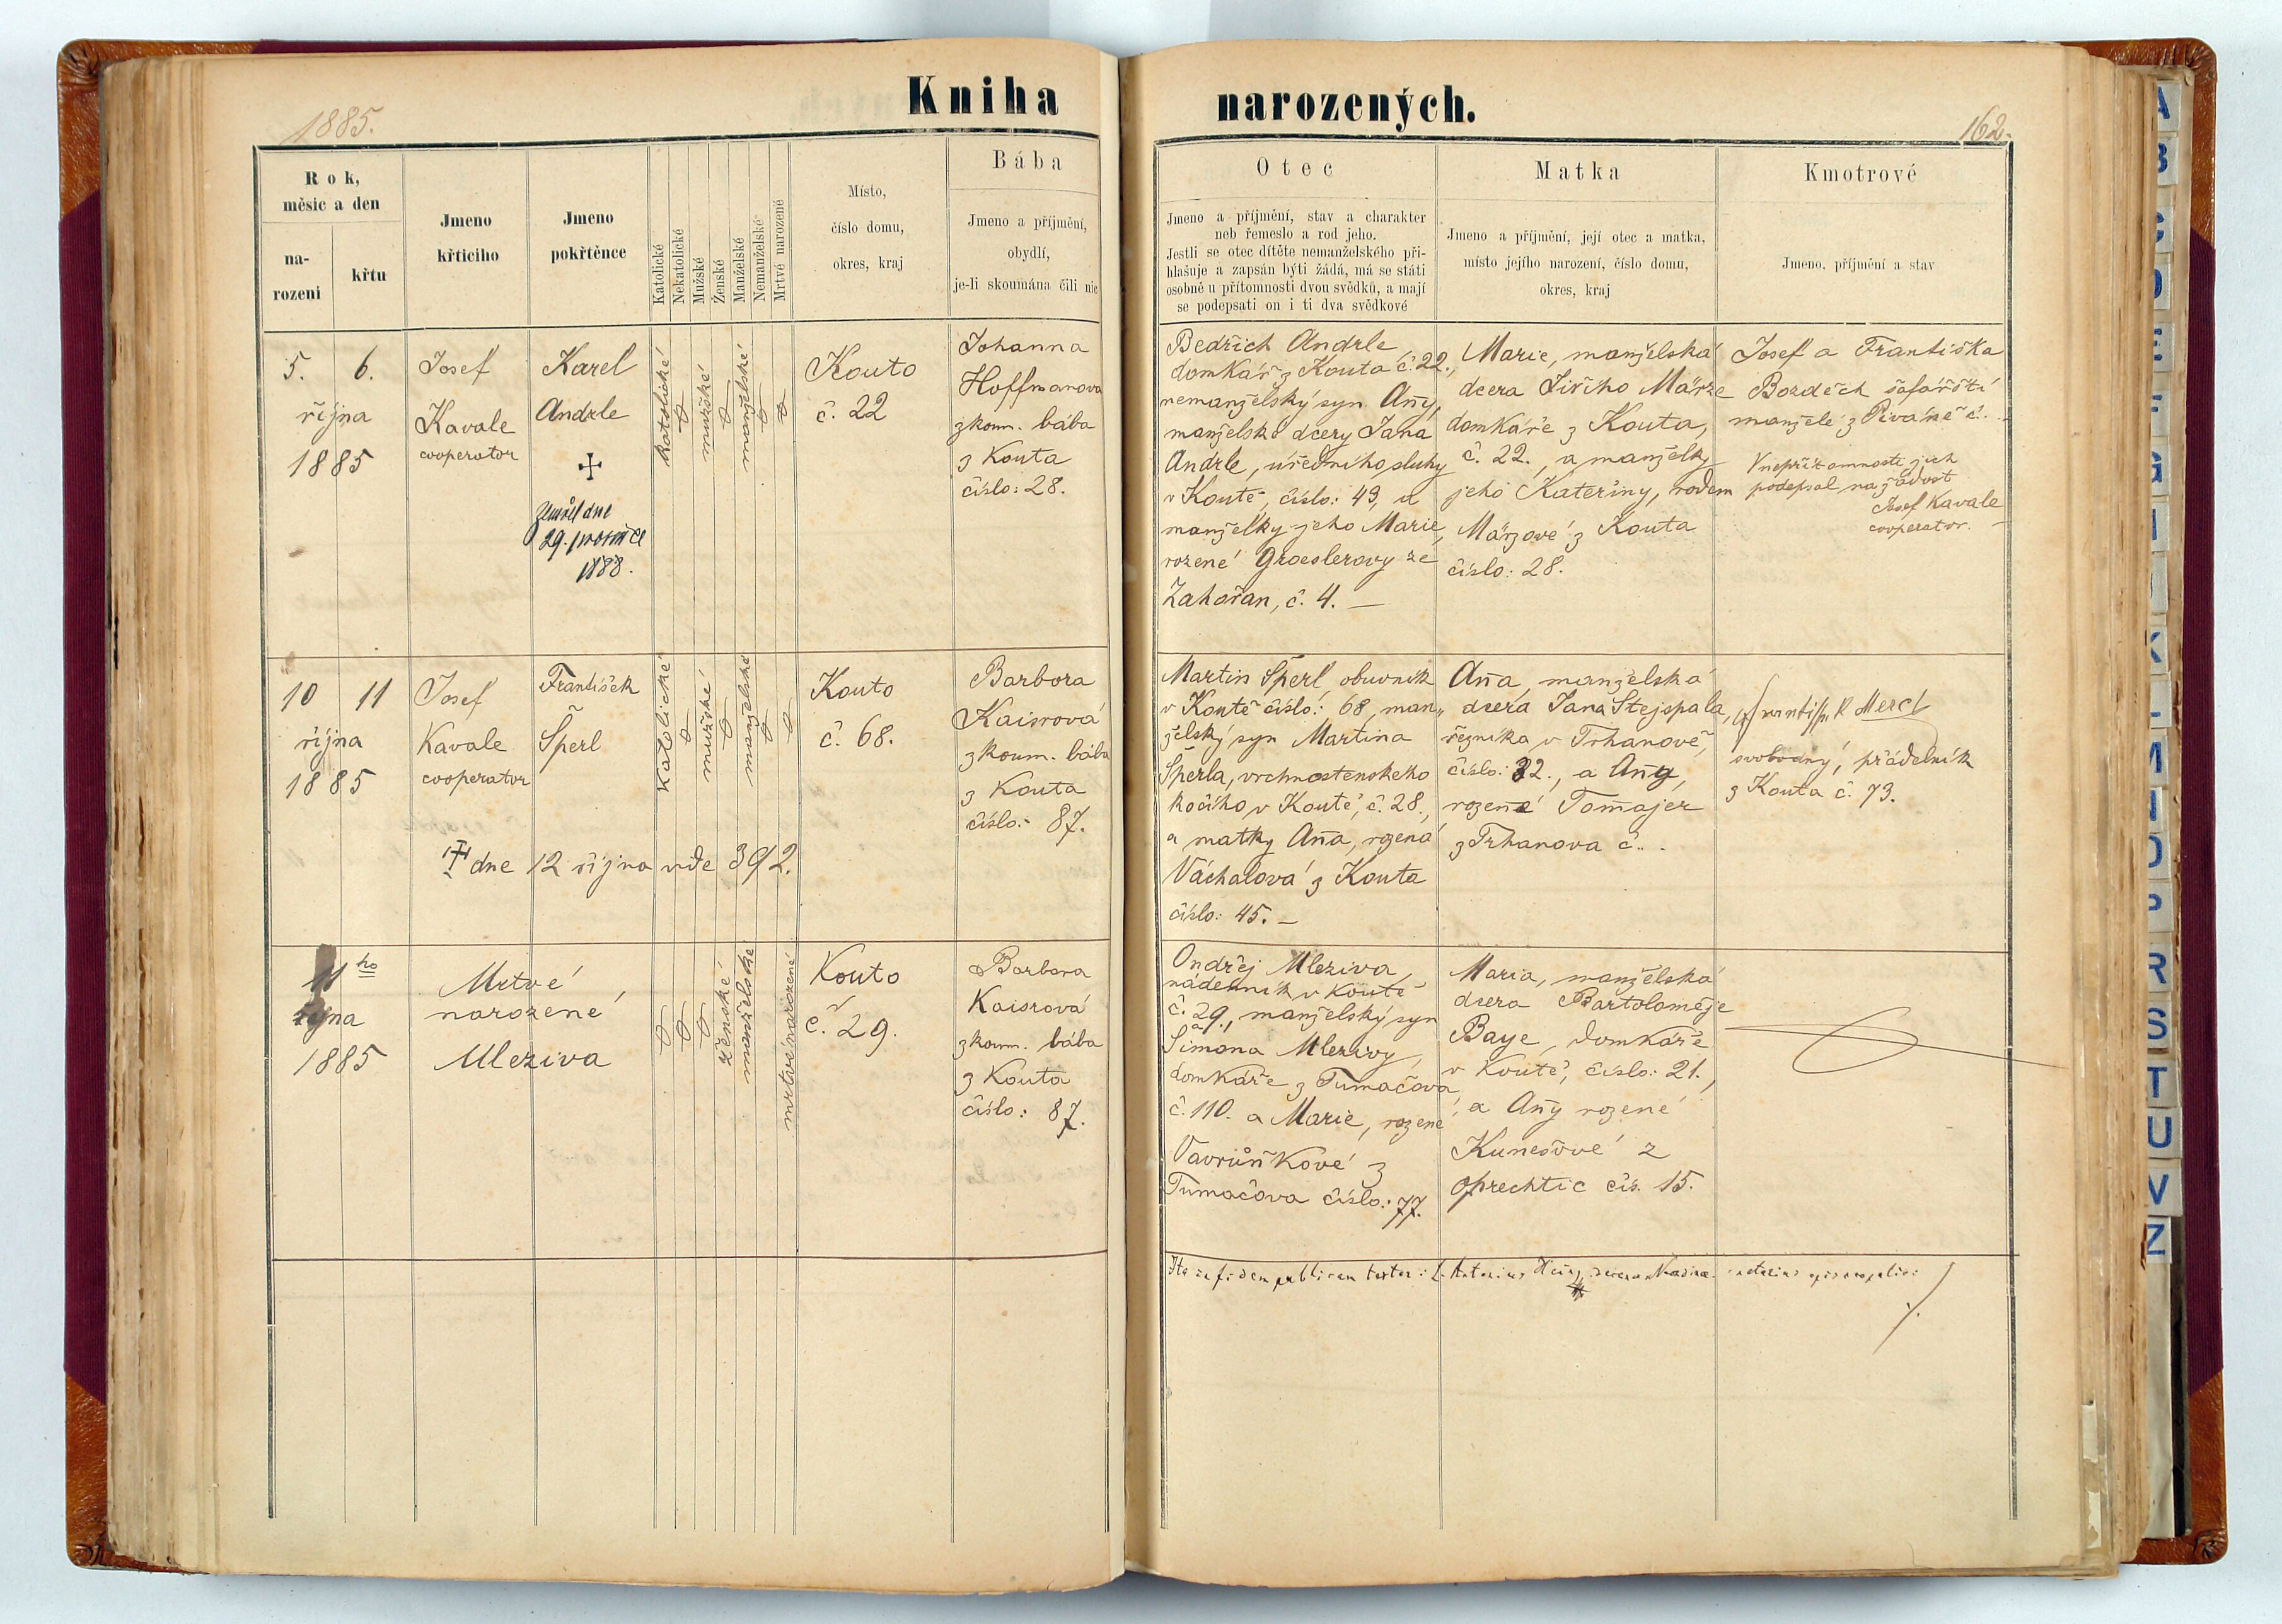 1885.
Kniha
narozených.
162.
Rok,
měsíc a den
na-
rozeni
křtu
Jmeno
křticiho
Jmeno
pokřtěnce
Katolické
Nekatolické
Mužské
Ženské
Manželské
Nemanželské
Mrtvé narozené
Místo,
číslo domu,
okres, kraj
Bába
Jmeno a příjmění,
obydlí,
je-li skoumána čili nic
Otec
Jmeno a příjmění, stav a charakter
neb řemeslo a rod jeho.
Jestli se otec dítěte nemanželského při-
hlašuje a zapsán býti žádá, má se státi
osobně u přítomnosti dvou svědků, a mají
se podepsati on i ti dva svědkové
Matka
Jmeno a příjmění, její otec a matka,
místo jejího narození, číslo domu,
okres, kraj
Kmotrové
Jmeno, příjmění a stav
5. 6.
října
1885
Josef
Kavale
cooperator
Karel
Andrle
Zemřel dne
29. prosince
1888.
Katolické
mužské
manželské
Kouto
č. 22
Johanna
Hoffmanova
zkoum. bába
z Kouta
číslo: 28.
Bedřich Andrle
domkář z Kouta č. 22.,
nemanželský syn Anny,
manželské dcery Jana
Andrle, úředního sluhy
v Koutě, číslo: 43, a
manželky jeho Marie,
rozené Groeslerovy ze
Zahořan, č. 4. —
Marie, manželská
dcera Jiřího Märze
domkáře z Kouta,
č. 22., a manželky
jeho Kateřiny, rodem
Märzové z Kouta
číslo: 28.
Josef a Františka
Bozděch šafářští
manželé z Pivaně č. . .
V nepřítomnosti jich
podepsal na žádost
Josef Kavale
cooperator. —
10 11
října
1885
Josef
Kavale
cooperator
František
Šperl
Katolické
mužské
manželské
Kouto
č. 68.
Barbora
Kaisrová
zkoum. bába
z Kouta
číslo: 87.
dne 12 října vide 392.
Martin Šperl, obuvník
v Koutě číslo: 68, man„
želský syn Martina
Šperla, vrchnostenského
kočího v Koutě, č. 28.,
a matky Anna, rozená
Váchalová z Kouta
číslo: 45. —
Anna, manželská
dcera Jana Stejspala,
řezníka v Trhanově,
číslo: 32., a Anny,
rozené Tommajer
z Trhanova č. . .
František Mercl
svobodný, přádelník
z Kouta č. 73.
11ho
října
1885
Mrtvé
narozené
Mleziva
ženské
manželské
mrtvé narozené
Kouto
č. 29.
Barbora
Kaisrová
zkoum. bába
z Kouta
číslo: 87.
Ondřej Mleziva,
nádenník v Koutě
č. 29., manželský syn
Šimona Mlezivy,
domkáře z Tumačova
č. 110. a Marie, rozené
Vavruňkové z
Tumačova číslo: 77.
Maria, manželská
dcera Bartoloměje
Baye, domkáře
v Koutě, číslo: 21.,
a Anny rozené
Kunešové z
Oprechtic čís. 15.
Ita in fidem publicam testor: Antonius notarius episcopalis
A
B
C
D
E
F
G
I
J
K
L
M
O
P
R
S
T
U
V
Z